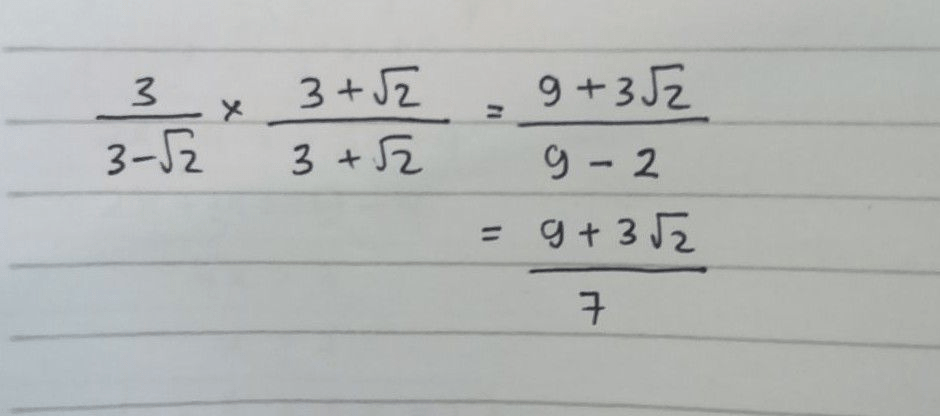 3/(3-√2) × (3+√2)/(3+√2) = (9+3√2)/(9-2)
= (9+3√2)/7